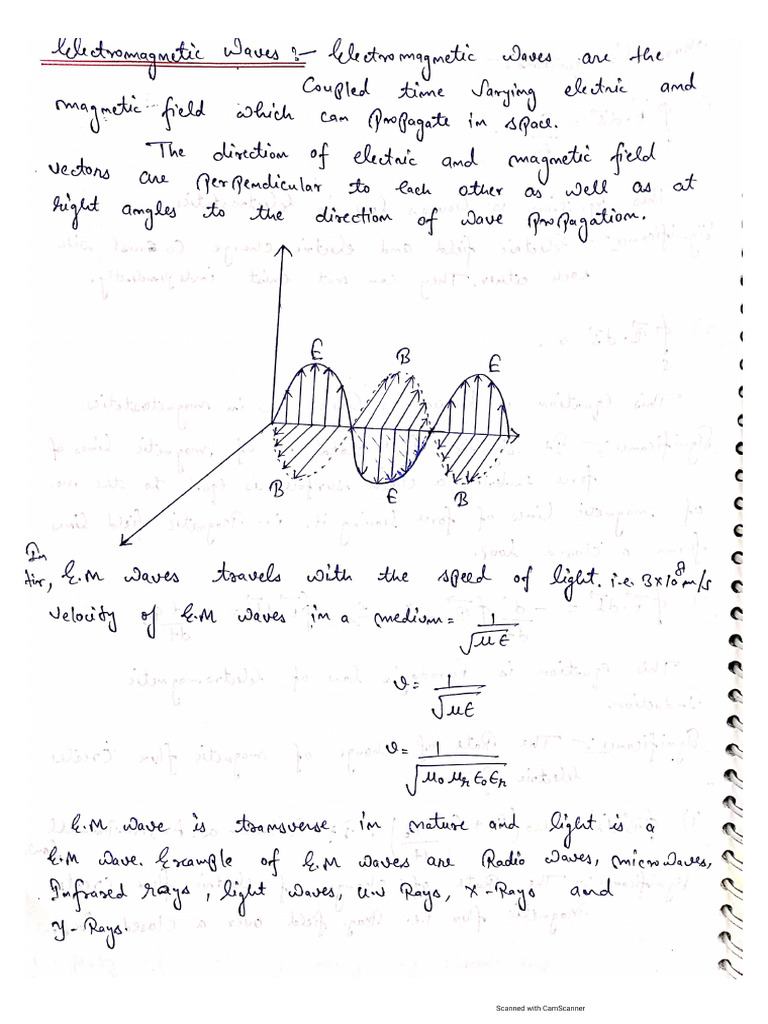 Electromagnetic Waves :- Electromagnetic waves are the
Coupled time varying electric and
magnetic field which can propagate in space.
The direction of electric and magnetic field
vectors are perpendicular to each other as well as at
right angles to the direction of wave propagation.
E
B
E
B
E
B
In
Air, E.M waves travels with the speed of light. i.e. 3×10⁸ m/s
Velocity of E.M waves in a medium = 1/√με
v = 1/√με
v = 1/√μ₀μᵣε₀εᵣ
E.M wave is transverse in nature and light is a
E.M wave. Example of E.M waves are Radio waves, microwaves,
Infrared rays, light waves, U.V Rays, X-Rays and
γ-Rays.
Scanned with CamScanner